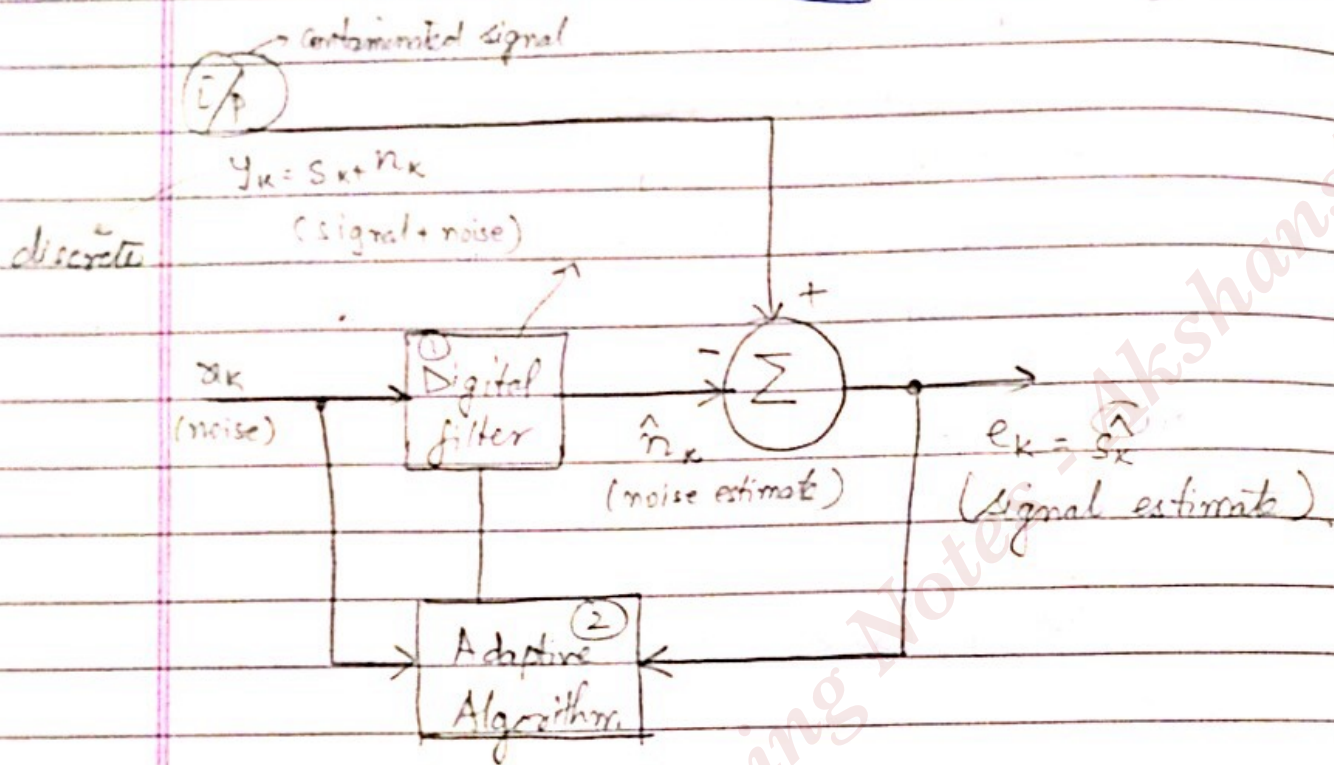 contaminated signal
i/p
yₖ = sₖ + nₖ
(signal + noise)
discrete
+
①
Digital
filter
-
Σ
xₖ
(noise)
n̂ₖ
(noise estimate)
eₖ = ŝₖ
(signal estimate)
②
Adaptive
Algorithm.
ing Notes - Akshans